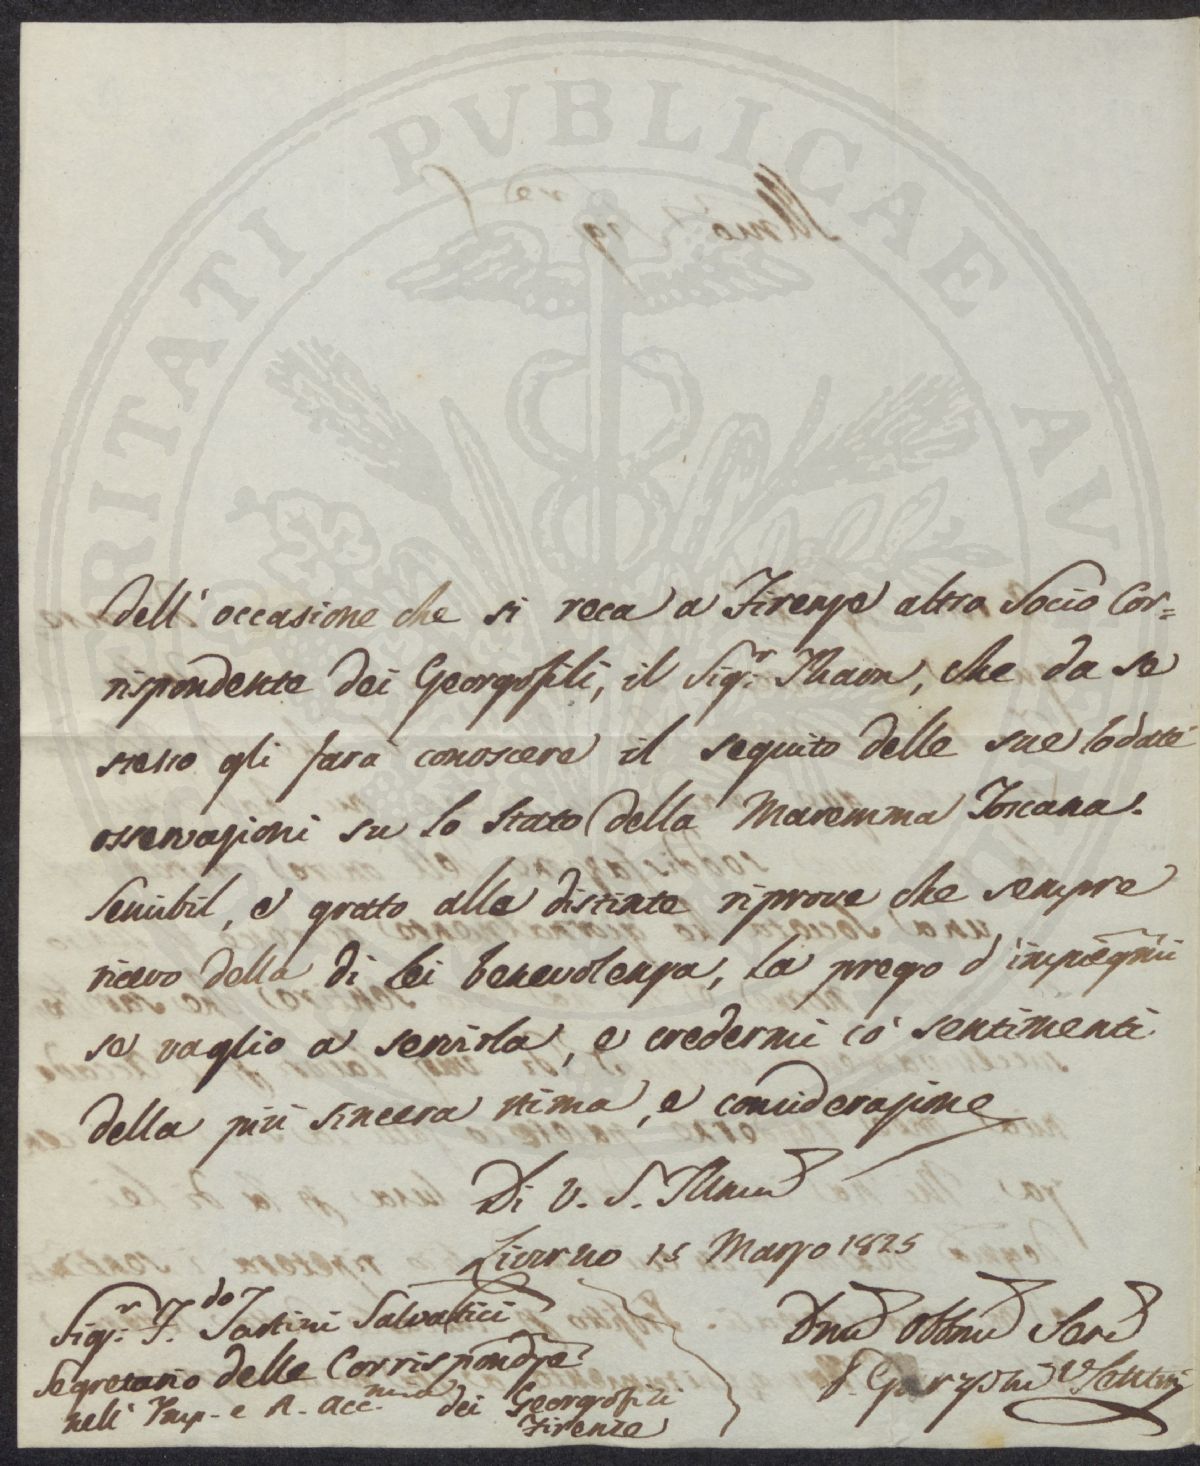 PROSPERITATI PVBLICAE AV
dell'occasione che si reca a Firenze altro Socio Cor=
rispondente dei Georgofili, il Sig.r Thaon, che da se
stesso gli farà conoscere il seguito delle sue lodate
osservazioni su lo stato della Maremma Toscana.
Sensibil, e grato alle distinte riprove che sempre
ricevo della di lei benevolenza, la prego d'impiegarmi
se vaglio a servirla, e credermi co' sentimenti
della più sincera stima, e considerazione
Di V. S. Illma
Livorno 15 Marzo 1825
Sig.r F.do Tartini Salvatici
Segretario delle Corrispondze
nell' Imp. e R. Acc.mia dei Georgofili
Firenze
Dmo Obbmo Ser